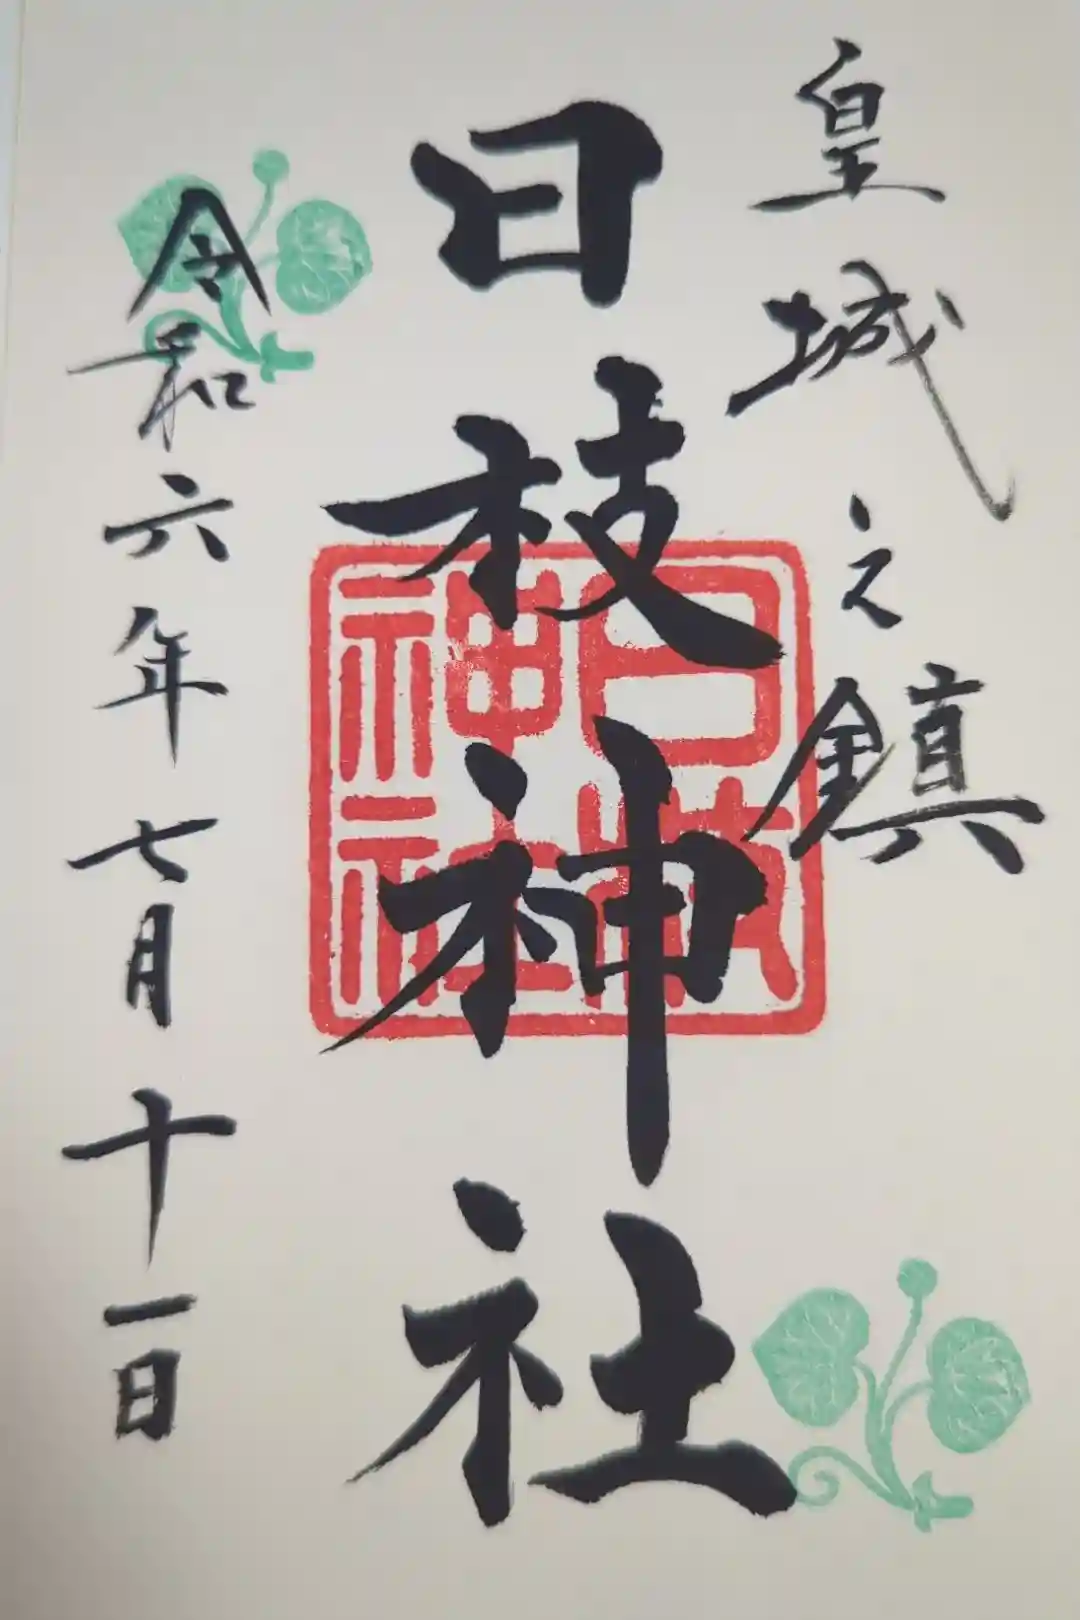 皇城之鎮
日枝神社
日枝神社
令和六年七月十一日